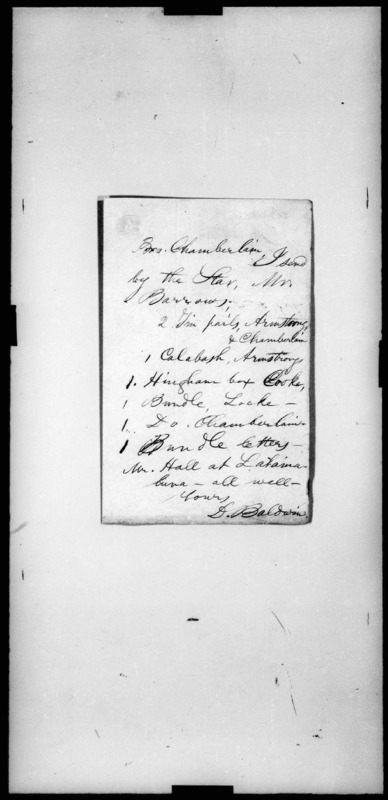 Bro. Chamberlain, I send
by the Star, Mr.
Barrows,
2 Tin pails, Armstrong,
& Chamberlain
1 Calabash, Armstrong
1. Hingham box Cooke,
1 Bundle, Locke -
1. Do. Chamberlain -
1 Bundle letters -
Mr. Hall at Lahaina
luna - all well -
Yours
D. Baldwin